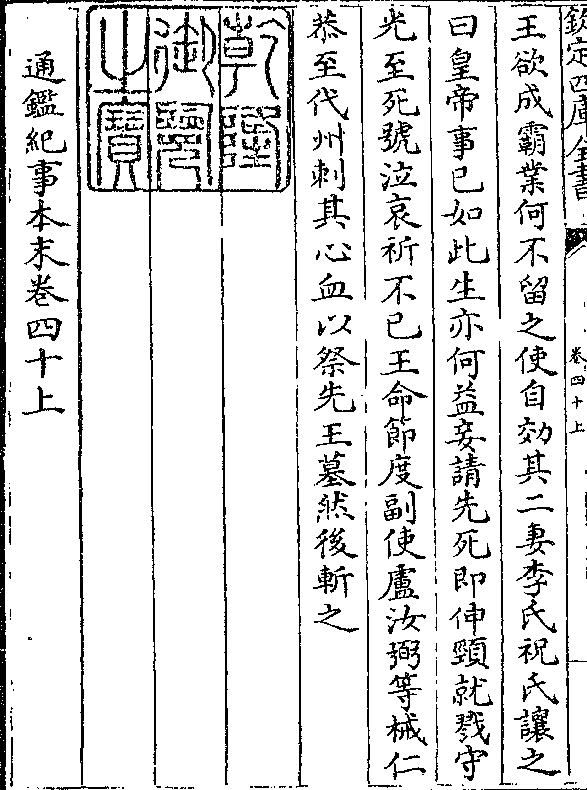 欽定四庫全書
卷四十上
王欲成霸業何不留之使自効其二妻李氏祝氏讓之
曰皇帝事已如此生亦何益妾請先死即伸頸就戮守
光至死號泣哀祈不已王命節度副使盧汝弼等械仁
恭至代州刺其心血以祭先王墓然後斬之
乾隆
御覽
之寶
通鑑紀事本末卷四十上